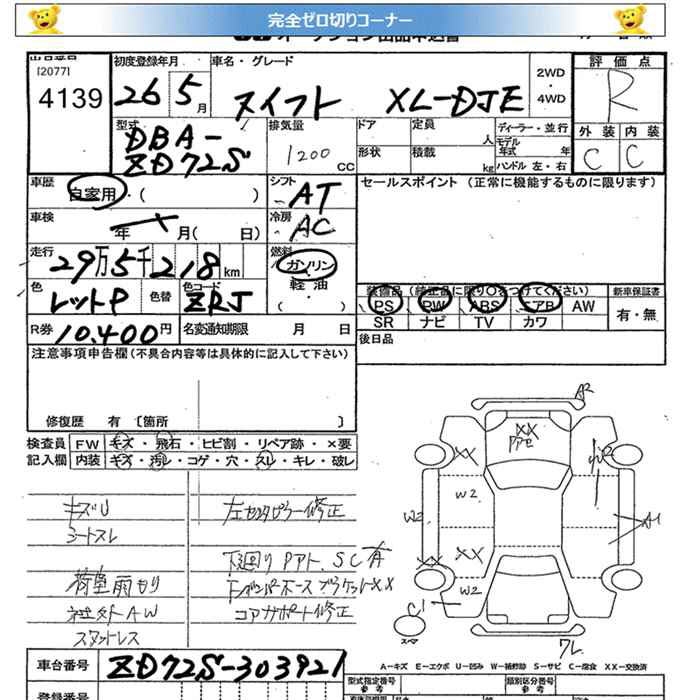 完全ゼロ切りコーナー
出品番号 初度登録年月 車名・グレード 2WD ・ 4WD 評価点
[2077]
4139 26 5月 スイフト XL-DJE R
型式 排気量 ドア 定員 人 ディーラー・並行 外装 内装
DBA-
ZD72S 1200 CC 形状 積載 kg モデル年式 年 ハンドル 左・右 C C
車歴 自家用・( ) シフト AT セールスポイント (正常に機能するものに限ります)
車検 年 月( 日) 冷房 AC
走行 29万5千218km 燃料 ガソリン
軽油・( )
色 レットP 色替 色コード ZRJ
装備品(純正品に限り○をつけてください) 新車保証書
PS PW ABS エアB AW 有・無
SR ナビ TV カワ
R券 10,400円 名変通知期限 月 日
後日品
注意事項申告欄(不具合内容等は具体的に記入して下さい)
修復歴 有 〔箇所 〕
検査員 FW キズ・飛石・ヒビ割・リペア跡・×要
記入欄 内装 キズ・汚レ・コゲ・穴・スレ・キレ・破レ
キズU 左センタピラー修正
シートスレ
下廻りPアト、SC有
荷室雨もり Fバンパーホースブラケット××
社外AW コアサポート修正
スタットレス
A2
XX
XX
W2
W2
A1
XX
XX
W2
C1
スペア
ワレ
A-キズ E-エクボ U-凹み W-補修跡 S-サビ C-腐食 XX-交換済
車台番号 ZD72S-303921 型式指定番号 参考 類別区分番号 参考
登録番号